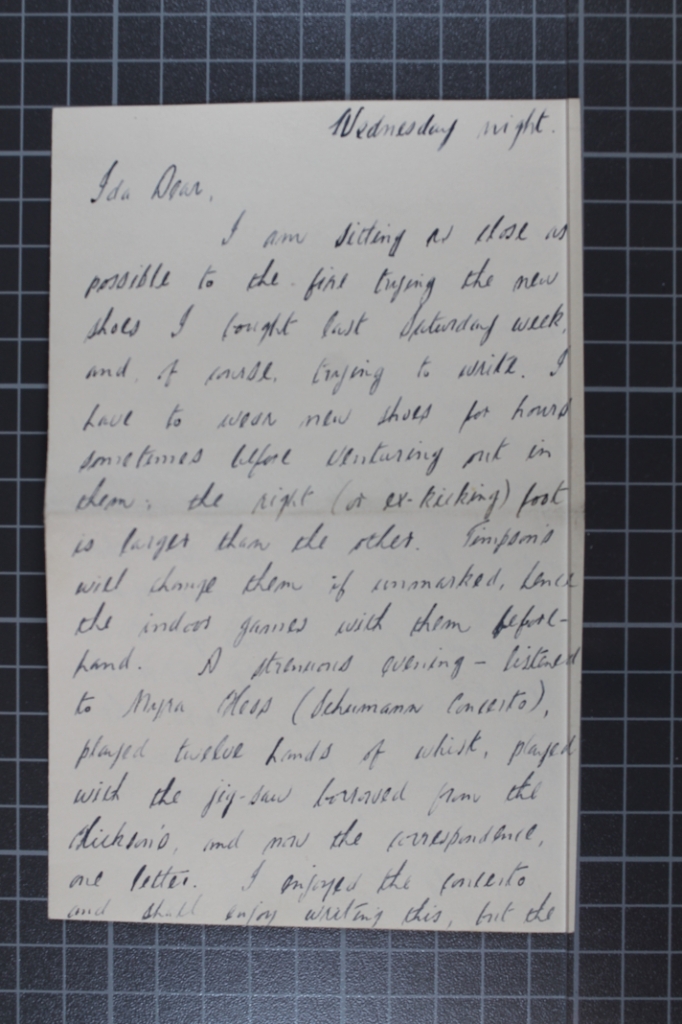 Wednesday night.
Ida Dear,
I am sitting as close as
possible to the fire trying the new
shoes I bought last Saturday week,
and, of course, trying to write. I
have to wear new shoes for hours
sometimes before venturing out in
them; the right (or ex-kicking) foot
is larger than the other. Timpson's
will change them if unmarked, hence
the indoor games with them before-
hand. A strenuous evening – listened
to Myra Hess (Schumann Concerto),
played twelve hands of whist, played
with the jig-saw borrowed from the
and now the correspondence,
one letter. I enjoyed the concerto
and shall enjoy writing this, but the